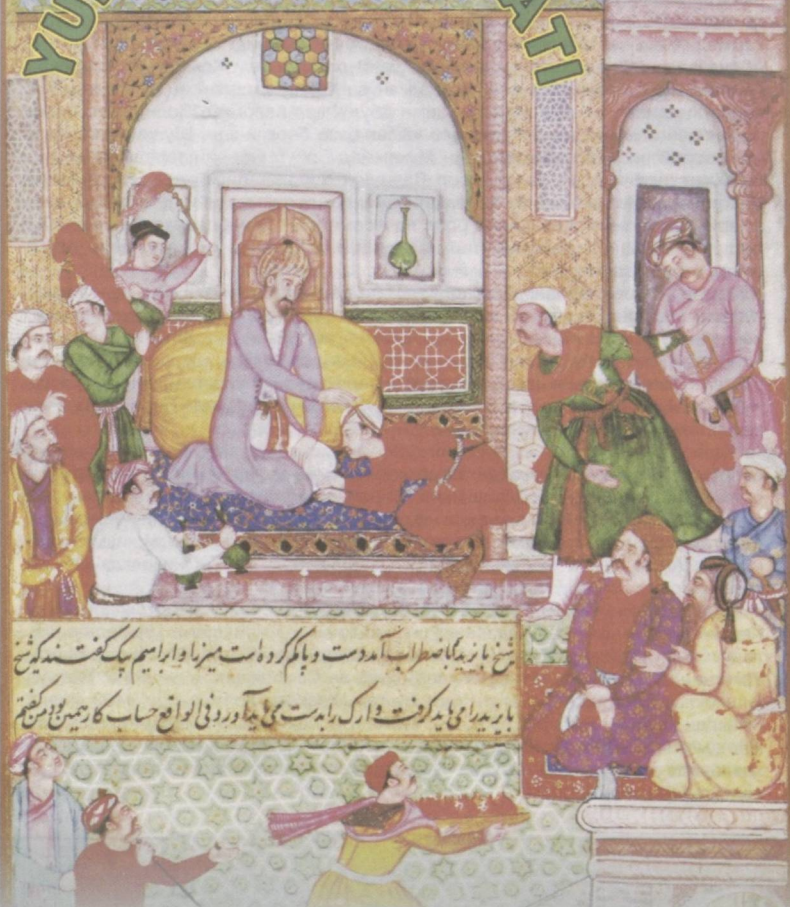 YU
ATI
شیخ بایزید باضطراب آمد دست و پا گم کرده است میرزا و ابراهیم بیک گفتند که شیخ
بایزید را می باید گرفت و ارک را بدست می باید آورد فی الواقع حساب کار همین بود من گفتم